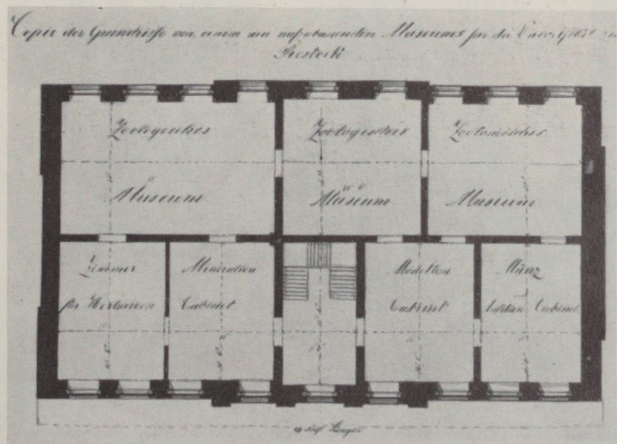 Copie der Grundrisse von einem neu aufzubauenden Museums für die Universität zu
Rostock
Zoologisches
Museum
Zoologisches
Museum
Zootomisches
Museum
Zimmer
für Herbarien
Mineralien
Cabinet
Modellen
Cabinet
Münz
Cabinet